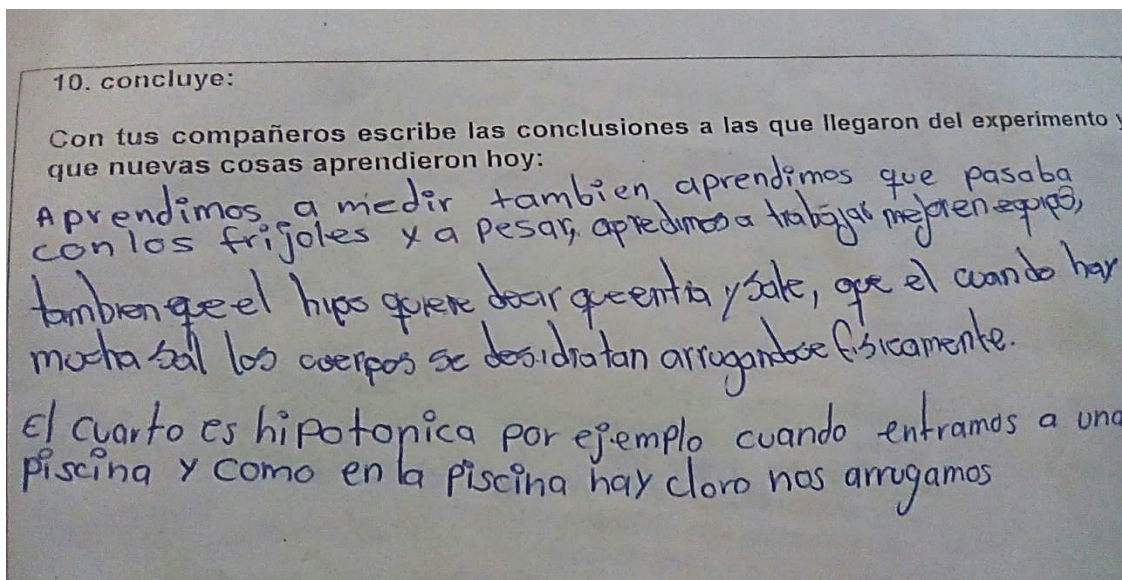 10. concluye:
Con tus compañeros escribe las conclusiones a las que llegaron del experimento y
que nuevas cosas aprendieron hoy:
Aprendimos a medir tambien aprendimos que pasaba
con los frijoles y a pesar, apredimos a trabajar mejor en equipo,
tambien que el hipo quiere decir que entra y sale, que el cuando hay
mucha sal los cuerpos se desidratan arrugandose fisicamente.
El cuarto es hipotonica por ejemplo cuando entramos a una
piscina y como en la piscina hay cloro nos arrugamos